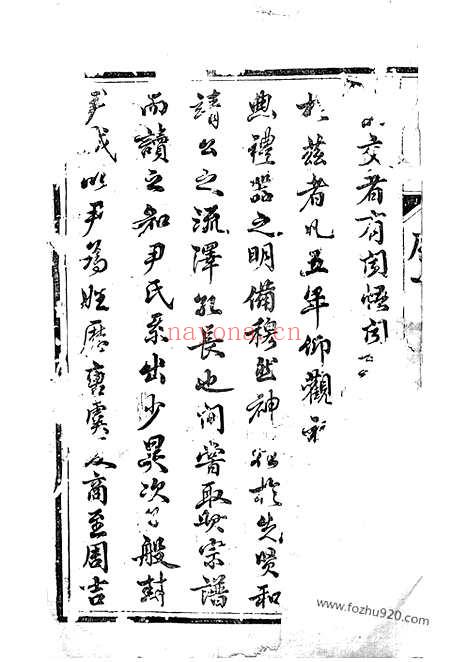 序
交者有
於茲者凡五年仰觀
典禮器之明備穆然神於先賢和
請公之流澤孔長也間嘗取其宗譜
而讀之知尹氏系出少昊次子般封
以尹為姓歷唐虞夏商至周吉
nayona.cn
www.fozhu920.com